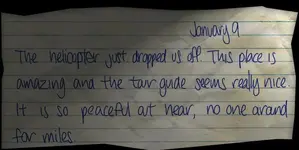 January 9
The helicopter just dropped us off This place is
amazing and the tour guide seems really nice
It is so peaceful out hear, no one around
for miles.